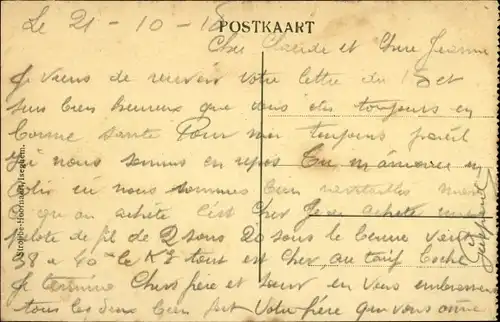 Le 21 - 10 - 18
POSTKAART
Cher Claude et Chère Jeanne
Je viens de recevoir votre lettre du 15 et
suis bien heureux que vous êtes toujours en
bonne santé Pour moi toujours pareil
Ici nous sommes en repos
en nous sommes bien
ce qu on achète c'est cher Je ai acheté une
pelote de fil de 2 sous 20 sous le beurre vaut
38 a 40 le Kg tout est cher au tarif boche
Je termine Chers frère et sœur en vous embrassant
tous les deux bien fort Votre frère que vous aime
Strobbe-Hoornaert, Iseghem.